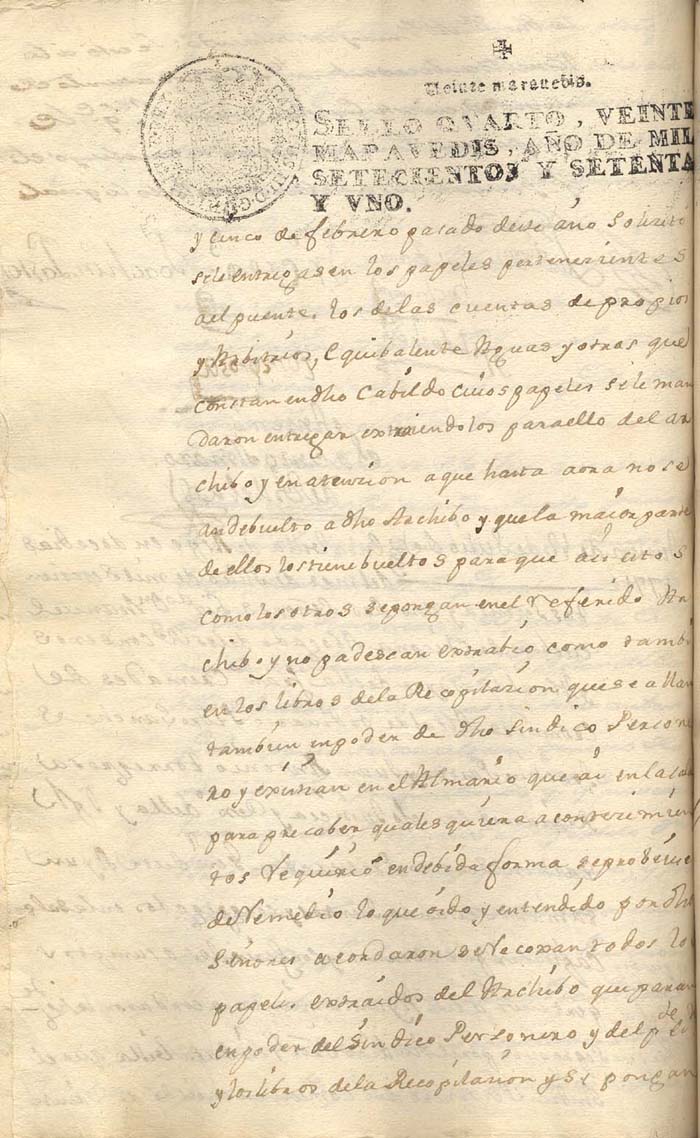 Veinte maravedis.
SELLO QVARTO, VEINTE
MARAVEDIS, AÑO DE MIL
SETECIENTOS Y SETENTA
Y VNO.
y cinco de febrero pasado deste año solicitó
sele entregasen los papeles pertenecientes
al puente. los delas cuentas de propios
y Arbitrios, Equibalente Aguas y otros que
constan en dho Cabildo cuios papeles sele man
daron entregar extraiendolos para ello del ar
chibo y en atenzion a que hasta aora no se
an debuelto a dho Archibo y que la maior parte
de ellos los tiene bueltos para que asi estos
como los otros se pongan en el referido Ar
chibo, y no padescan extrabio como tambi
en los libros dela Recopilazion que se allan
tambien en poder de dho sindico Perzone
ro y existian en el Almario que ai en la sala
para precaber quales quiera acontecimien
tos requirio en debida forma se probeiese
de remedio lo que oido y entendido por dhos
Señores acordaron se recoxan todos los
papeles extraidos del Archibo que paran
en poder del Sindico Personero y del
y los libros de la Recopilazion y se pongan